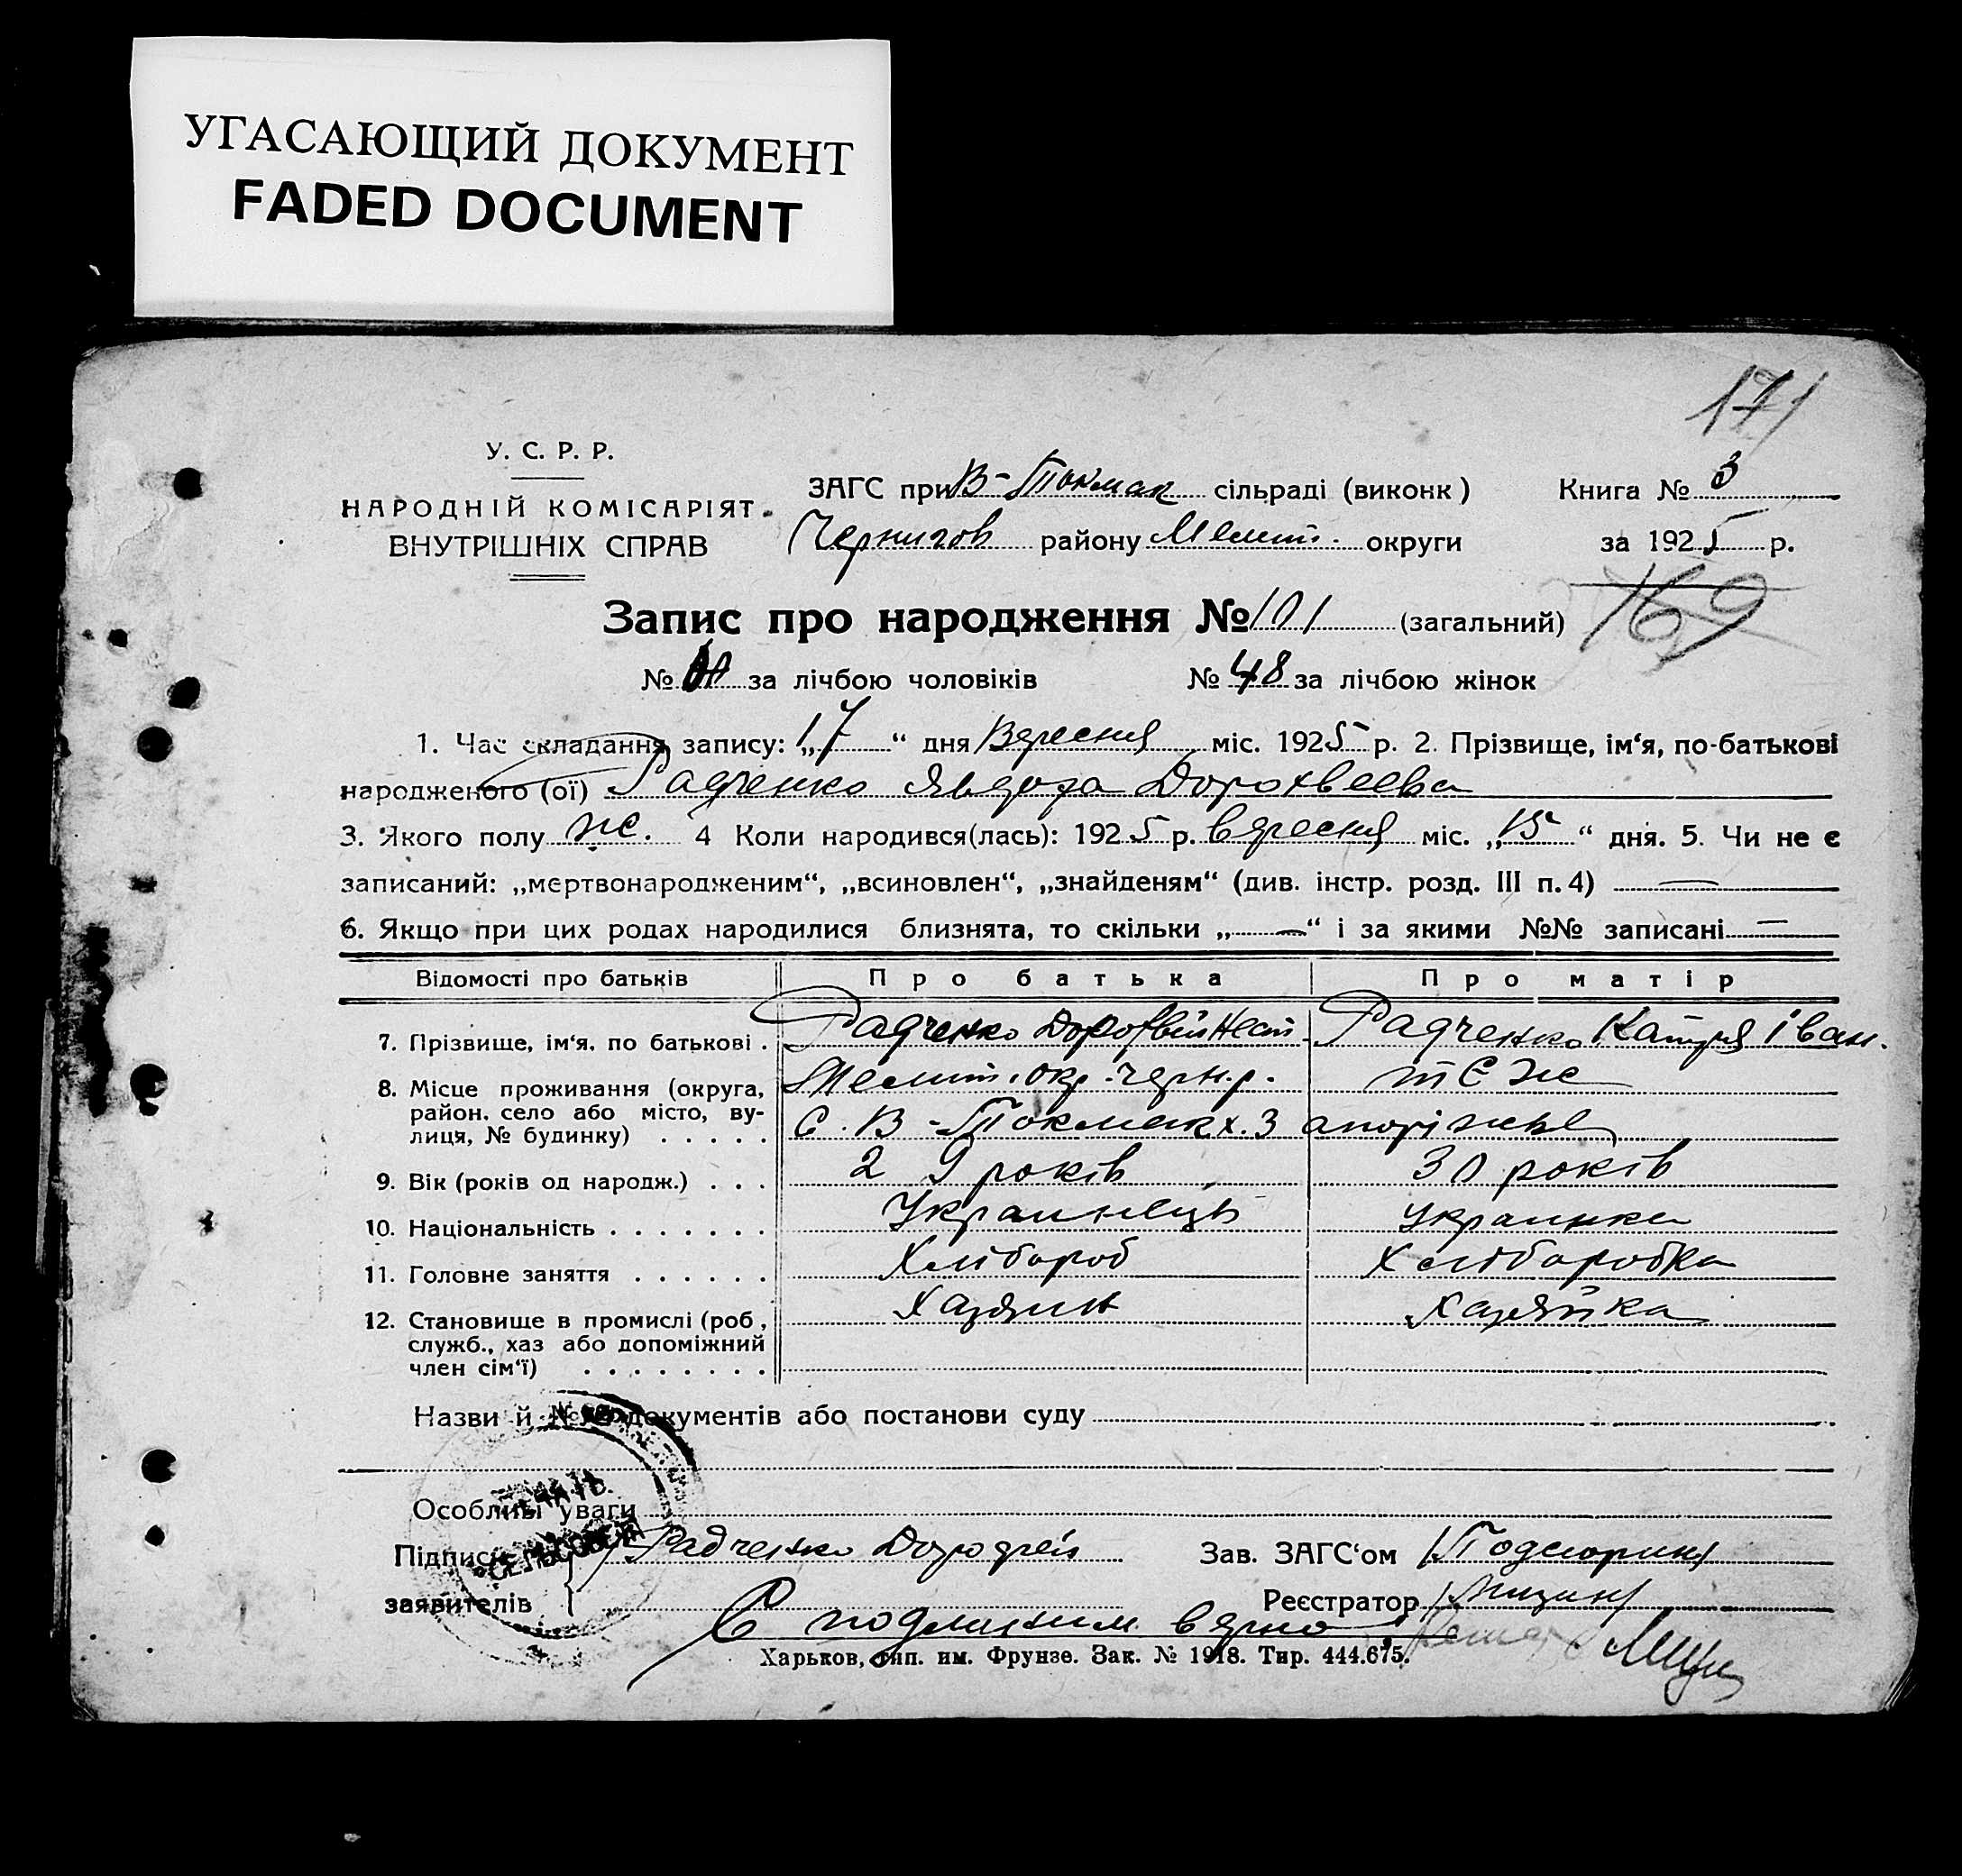 УГАСАЮЩИЙ ДОКУМЕНТ
FADED DOCUMENT
171
У. С. Р. Р.
НАРОДНІЙ КОМІСАРІЯТ
ВНУТРІШНІХ СПРАВ
ЗАГС при В-Токмак сільраді (виконк)
Чернигов району Мелит. округи
Книга № 3
за 1925 р.
169
Запис про народження № 101 (загальний)
№ за лічбою чоловіків № 48 за лічбою жінок
1. Час складання запису: „17“ дня Вересня міс. 1925 р. 2. Прізвище, ім‘я, по-батькові
народженого (ої) Радченко Явдоха Дорохвеевна
3. Якого полу ж. 4 Коли народився(лась): 1925 р. вересня міс. „15“ дня. 5. Чи не є
записаний: „мертвонародженим“, „всиновлен“, „знайденям“ (див. інстр. розд. III п. 4) —
6. Якщо при цих родах народилися близнята, то скільки „—“ і за якими №№ записані —
Відомості про батьків Про батька Про матір
7. Прізвище, ім‘я, по батькові . Радченко Дорофвій Нест. Радченко Катря Іван.
8. Місце проживання (округа, район, село або місто, вулиця, № будинку) . . . . . Мелит. окр. Черн. р. тєж
С. В-Токмак х. Запоріжье
9. Вік (років од народж.) . . . 29 років 30 років
10. Національність . . . . . . . Украинець украинка
11. Головне заняття . . . . . . Хлібороб Хліборобка
12. Становище в промислі (роб, служб., хаз або допоміжний член сім‘ї) . . . . . . . . Хазяин хазяйка
Назви й №№ документів або постанови суду
Особливі уваги
СЕЛЬСОВЕТА
Підписи Радченко Дорофей Зав. ЗАГС‘ом
заявителів Реєстратор
С подлиним вярно
Харьков, тип. им. Фрунзе. Зак. № 1918. Тир. 444.675.